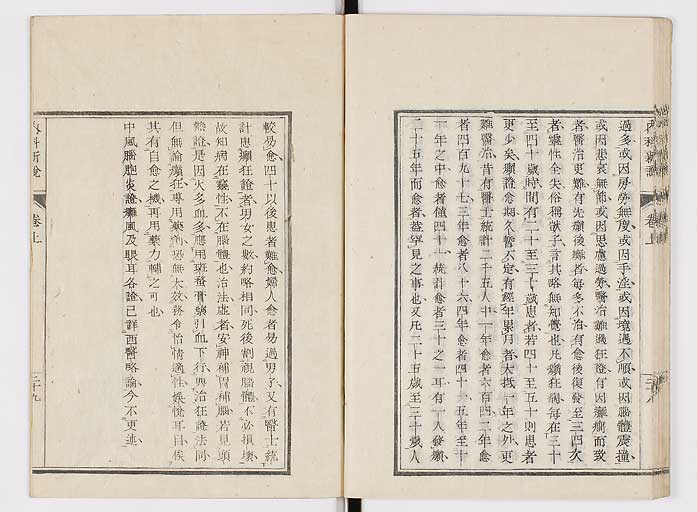 過多或因房勞無度或因手淫或因境遇不順或因腦體震撞
或因悲哀無節或因思慮過勞醫治難過狂證有因癱瘋而致
者醫治更難有先癲後癱者每多不治有愈後復發至三四次
者靈性全失俗稱獃子言其略無知覺也凡癲狂病每在三十
至四十歲時間有二十至三十歲患者若四十至五十則患者
更少矣癲證愈期久暫不定有經年累月者大抵一年之外更
難醫治昔有醫士統計二千五人中一年愈者六百四二年愈
者四百九十七三年愈者八十六四年愈者四十一五年至十
一年之中愈者僅四十一統計愈者三十之一耳有一人發癲
二十五年而愈者蓋罕見之事也又凡二十五歲至三十歲人
內科新說
卷上
較易愈四十以後患者難愈婦人愈者易過男子又有醫士統
計患癲狂者男女之數約略相同死後割視腦體不必損壞
故知病在靈性不在腦體也治法虛者安神補胃補腦若見頭
熱證是因火多血多應用斑蝥膏藥引血下行與治狂證法同
但無論癲狂專用藥劑恐無大效務令怡情適性娛悅耳目俟
其有自愈之機再用藥力輔之可也
中風腦胞炎證癱風及眼耳各證已詳西醫略論今不更述
內科新說
卷上
二十九